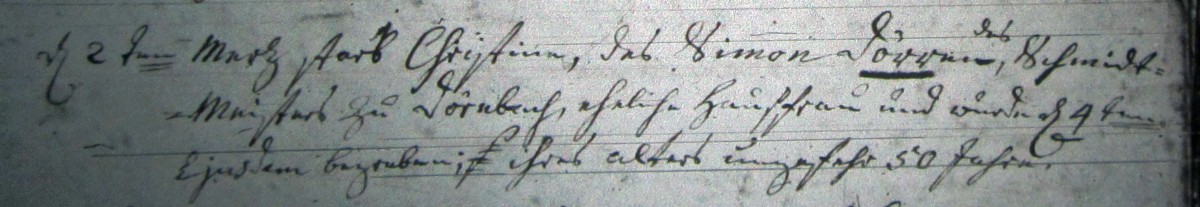 d 2 ten Mertz starb Christina, des Simon Dörren, des Schmidt=
=Meisters zu Dörnbach, eheliche Haußfrau und wurde d 4 ten
Ejusdem begraben; ihres alters ungefehr 50 Jahre.